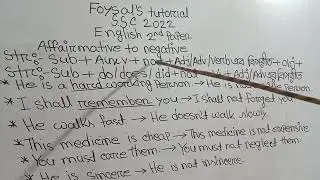 Foysal's tutorial
SSC 2022
English 2nd Paper
Affairmative to negative
Str:- Sub + Aux.v + not + Adj/Adv/verb
Str:- Sub + do/does/did + not + V + Adj/Adv
* He is a hard working person → He is not person
* I shall remember you → I shall not forget you
* He walks fast → He doesn't walk slowly.
* This medicine is cheap → This medicine is not expensive
* You must care them → You must not neglect them
* He is sincere → He is not insincere